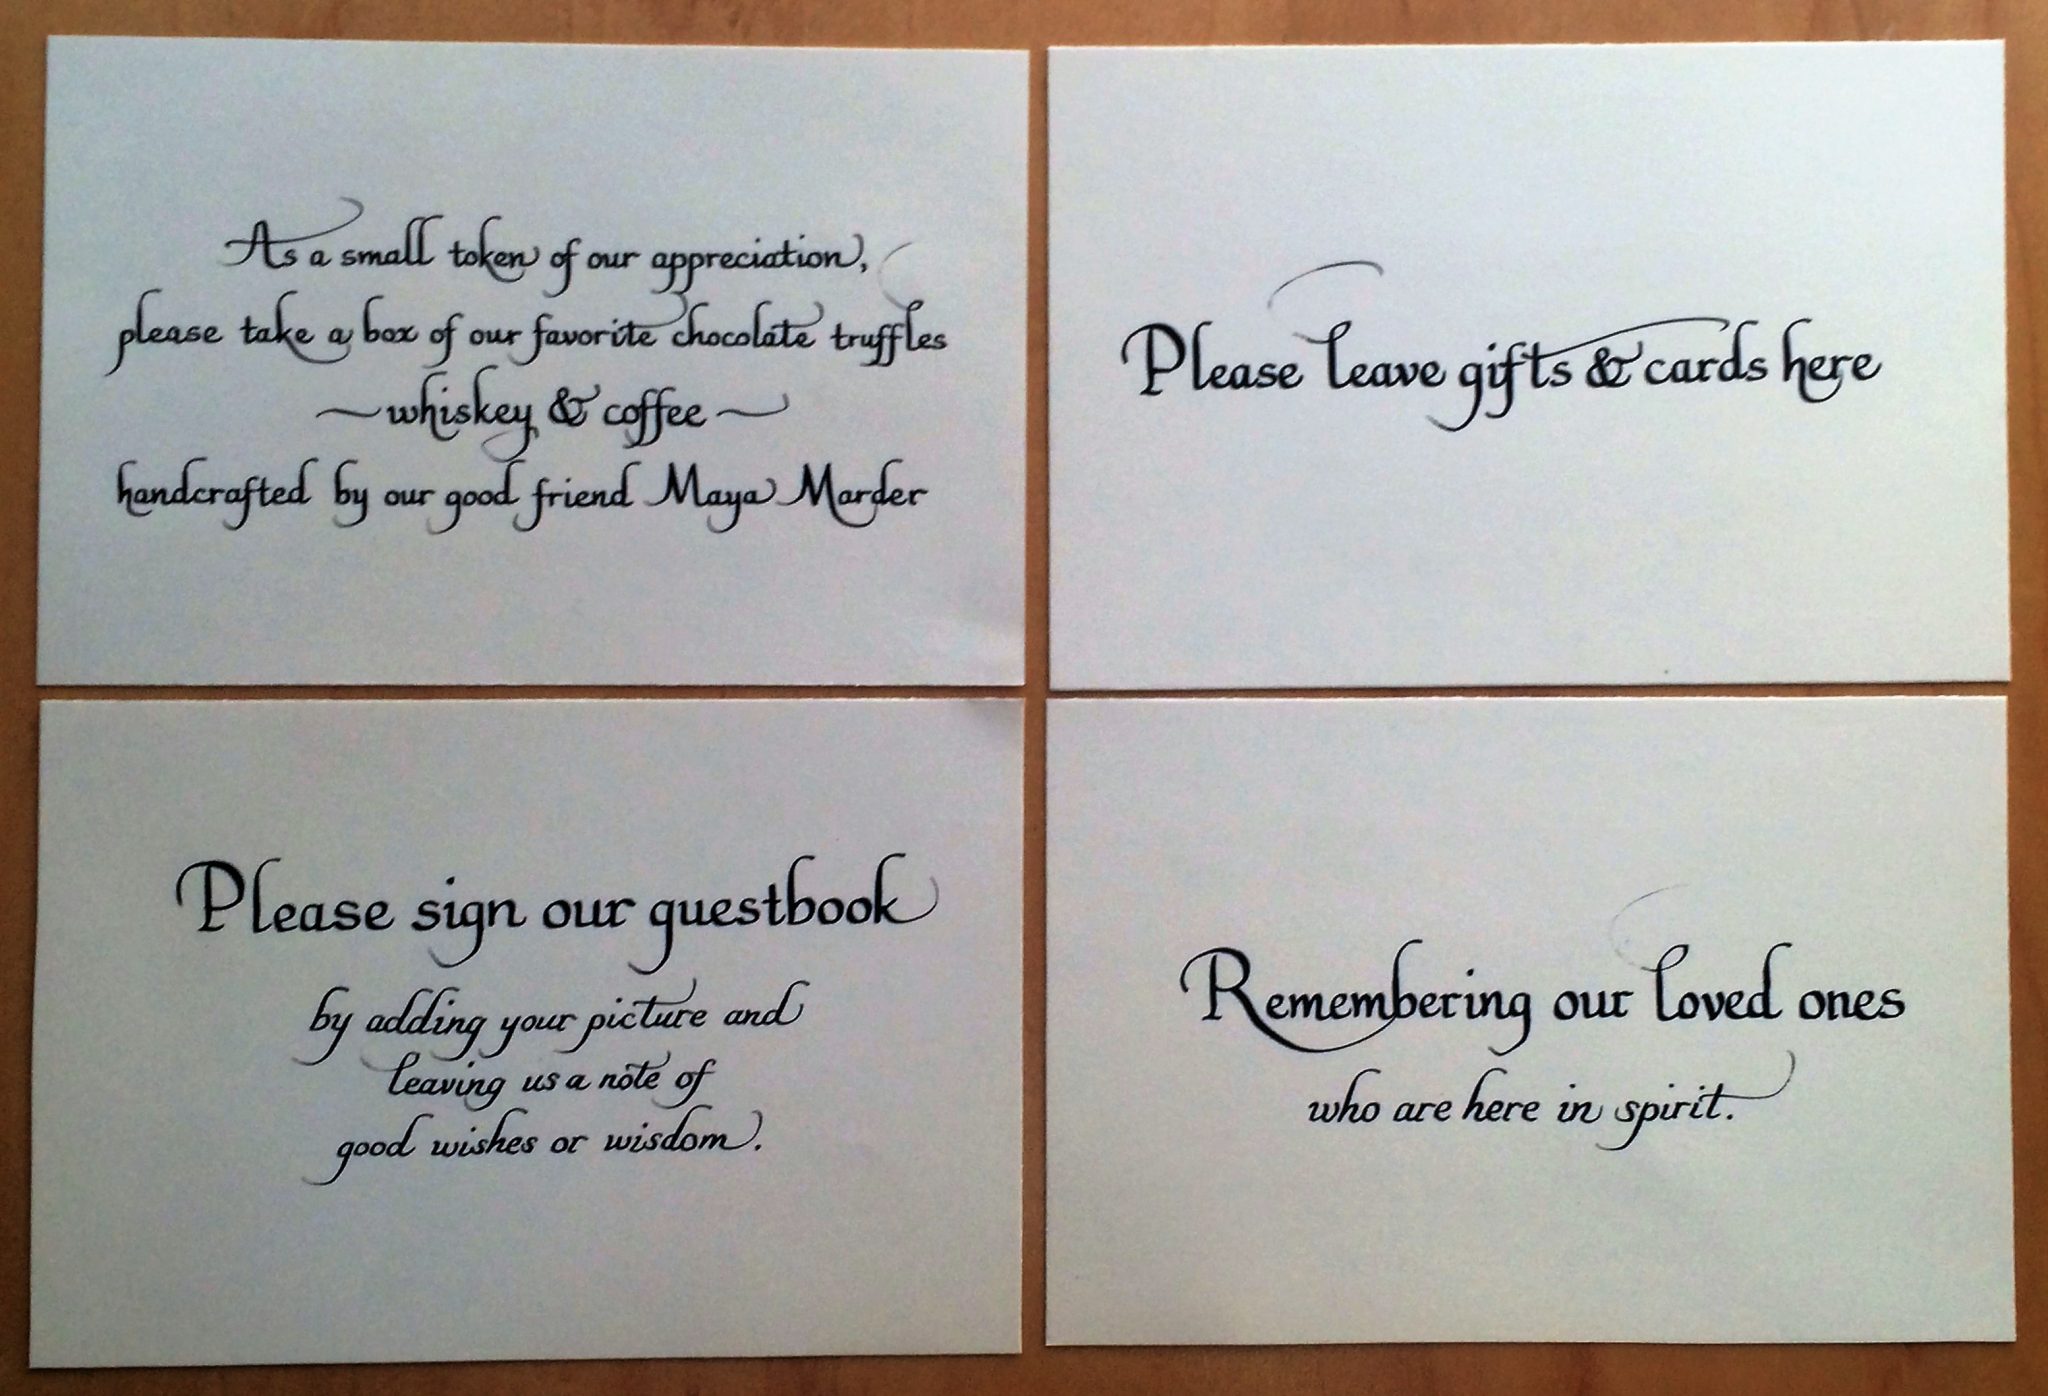 As a small token of our appreciation,
please take a box of our favorite chocolate truffles
~ whiskey & coffee ~
handcrafted by our good friend Maya Marder
Please leave gifts & cards here
Please sign our guestbook
by adding your picture and
leaving us a note of
good wishes or wisdom.
Remembering our loved ones
who are here in spirit.